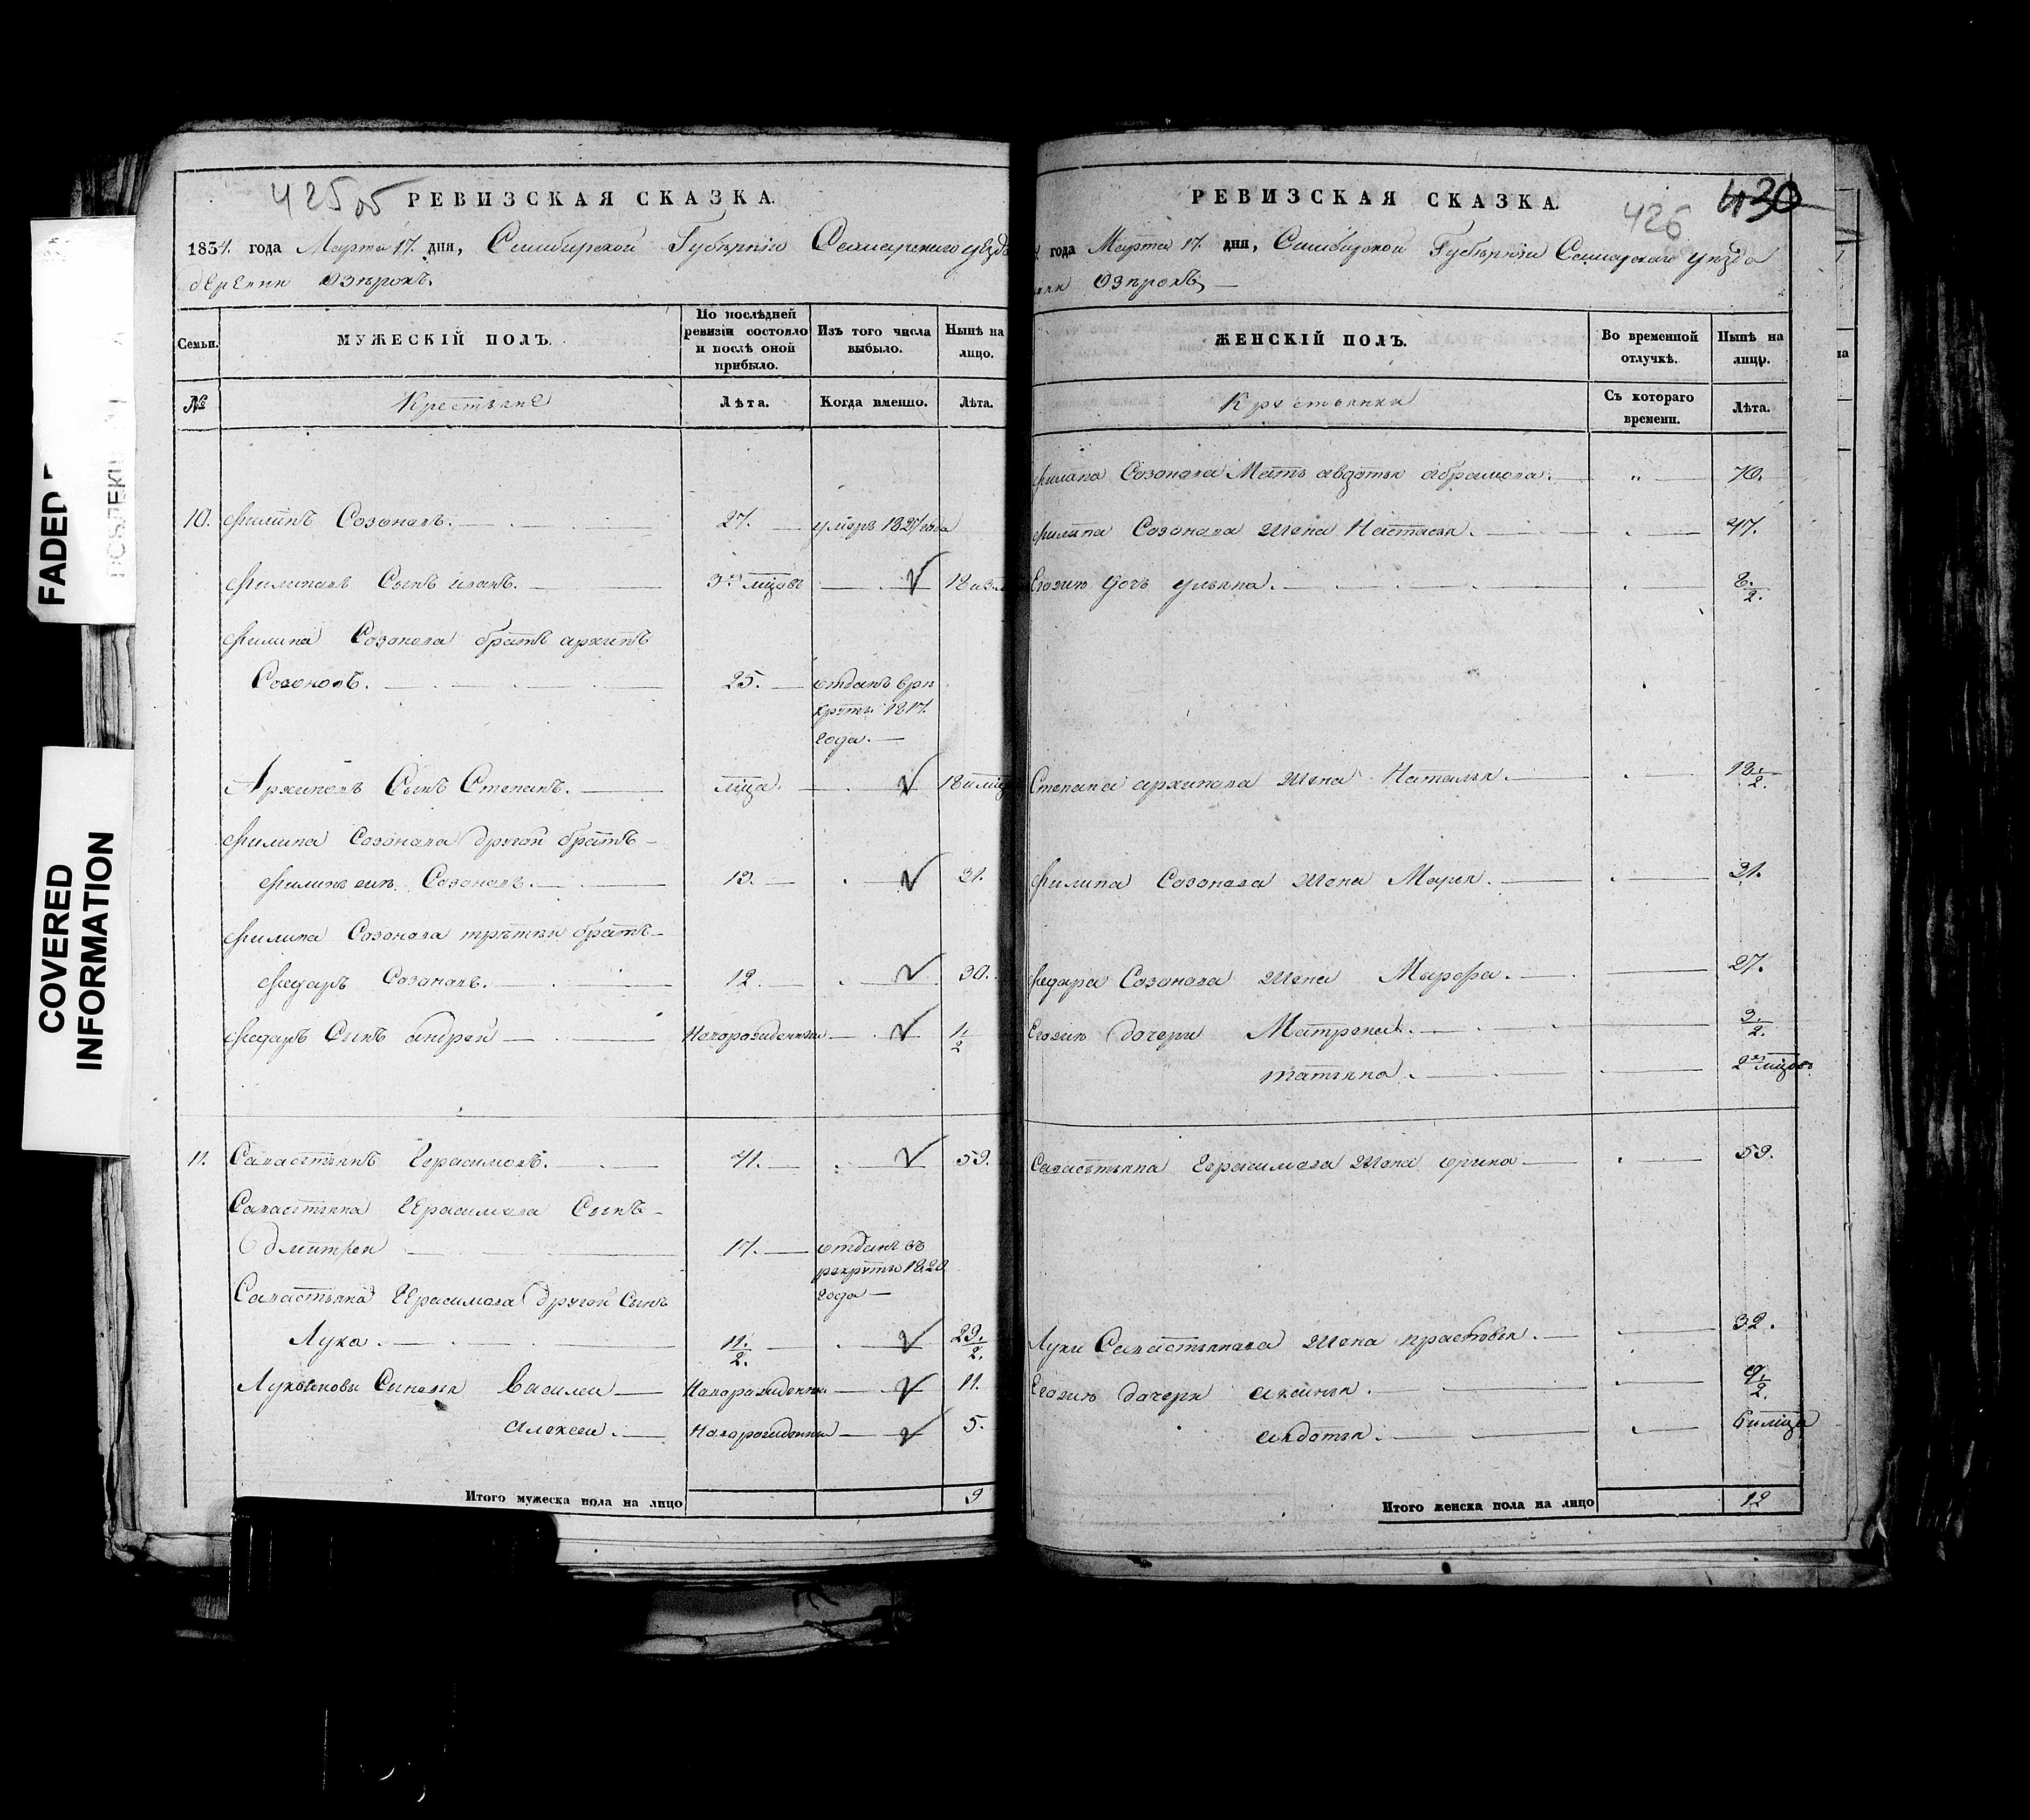 425об РЕВИЗСКАЯ СКАЗКА.
1834. года Марта 17. дня, Симбирской Губерніи Самарского уезда
деревни Озерокъ.
Семьи.
МУЖЕСКІЙ ПОЛЪ.
По послѣдней ревизіи состояло и послѣ оной прибыло.
Изъ того числа выбыло.
Нынѣ на лицо.
№
Крестьяне
Лѣта.
Когда именно.
Лѣта.
10. Филипъ Созоновъ. 27. умеръ 1827 года
Филиповъ Сынъ иванъ. 3хъ мцовъ 18 и 3
Филипа Созонова братъ архипъ
Созоновъ. 25. отданъ в ре
круты 1817.
года.
Архиповъ Сынъ Степанъ. мца. 18 и мца
Филипа Созонова другой братъ
Филипъ Созоновъ. 13. 31.
Филипа Созонова третей братъ
Федаръ Созоновъ. 12. 30.
Федаръ Сынъ андрей Новорожденный 1/2
11. Савастьянъ Герасимовъ. 41. 59.
Савастьяна Герасимова Сынъ
дмитрей 17. отданъ въ
рекруты 1820
года
Савастьяна Герасимова другой Сынъ
Лука. 11.1/2. 29.1/2.
Лукояновы Сыновья Василеи Новорожденны. 11.
Алексеи. Новорожденныи 5.
Итого мужеска пола на лицо 9
РЕВИЗСКАЯ СКАЗКА. 426 430
года Марта 17. дня, Симбирской Губерніи Самарского уезда
Озерокъ,
ЖЕНСКІЙ ПОЛЪ.
Во временной отлучкѣ.
Нынѣ на лицо.
Крестьянки
Съ котораго времени.
Лѣта.
Филипа Созонова Мать авдотья абрамова. " 70.
Филипа Созонова Жена Настасья. 47.
Еговю дочь ульяна. 8.1/2.
Степана архипова Жена Наталья. 18.1/2.
Филипа Созонова Жена Марья. 31.
Федара Созонова Жена Марфа. 27.
Еговю дочери Матрена. 3.1/2.
татьяна. 2хъ мцовъ.
Савастьяна Герасимова Жена ирина 59.
Луки Савастьянова Жена прасковья. 32.
Еговю дочери аксинья. 9.1/2.
авдотья. 6 и мца
Итого женска пола на лицо 12
FADED
COVERED
INFORMATION